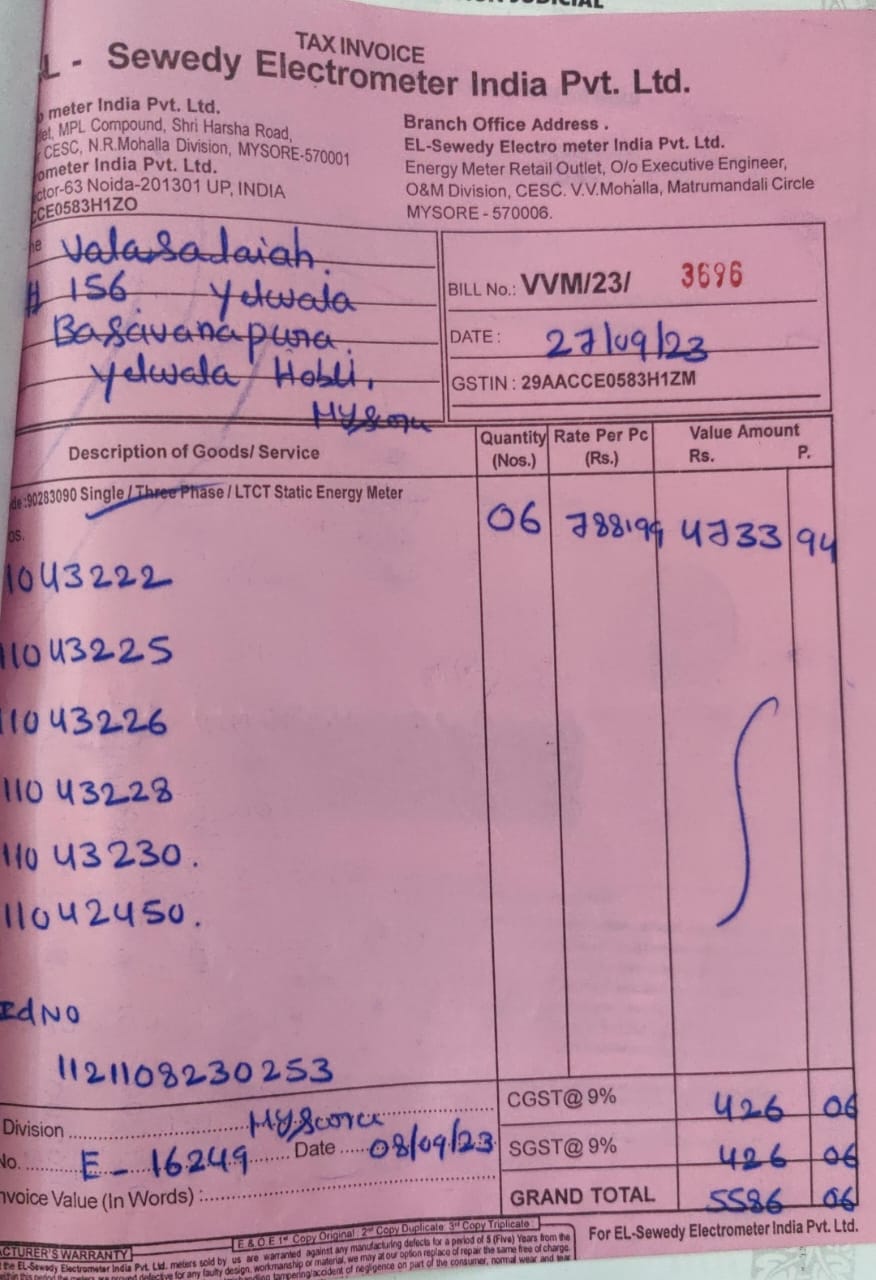 TAX INVOICE
L - Sewedy Electrometer India Pvt. Ltd.
meter India Pvt. Ltd.
MPL Compound, Shri Harsha Road,
CESC, N.R.Mohalla Division, MYSORE-570001
ometer India Pvt. Ltd.
ctor-63 Noida-201301 UP, INDIA
CCE0583H1ZO
Branch Office Address .
EL-Sewedy Electro meter India Pvt. Ltd.
Energy Meter Retail Outlet, O/o Executive Engineer,
O&M Division, CESC. V.V.Mohalla, Matrumandali Circle
MYSORE - 570006.
Valasadaiah.
# 156 Yelwala
Basavanapura.
Yelwala Hobli,
Mysore
BILL No.: VVM/23/ 3696
DATE : 27/09/23
GSTIN : 29AACCE0583H1ZM
Description of Goods/ Service
Quantity (Nos.)
Rate Per Pc (Rs.)
Value Amount
Rs. P.
de :90283090 Single / Three Phase / LTCT Static Energy Meter
os.
06 788.99 4733 94
11043222
11043225
11043226
11043228
11043230.
11042450.
Ed NO
1121108230253
CGST@ 9% 426 06
SGST@ 9% 426 06
GRAND TOTAL 5586 06
Division Mysore
No. E - 16249 Date 08/09/23
nvoice Value (In Words) :
E & O E 1st Copy Original : 2nd Copy Duplicate 3rd Copy Triplicate
For EL-Sewedy Electrometer India Pvt. Ltd.
ACTURER'S WARRANTY
the EL-Sewedy Electrometer India Pvt. Ltd. meters sold by us are warranted against any manufacturing defects for a period of 5 (Five) Years from the
for any faulty design, workmanship or material, we may at our option replace of repair the same free of charge.
tampering/accident of negligence on part of the consumer, normal wear and tear